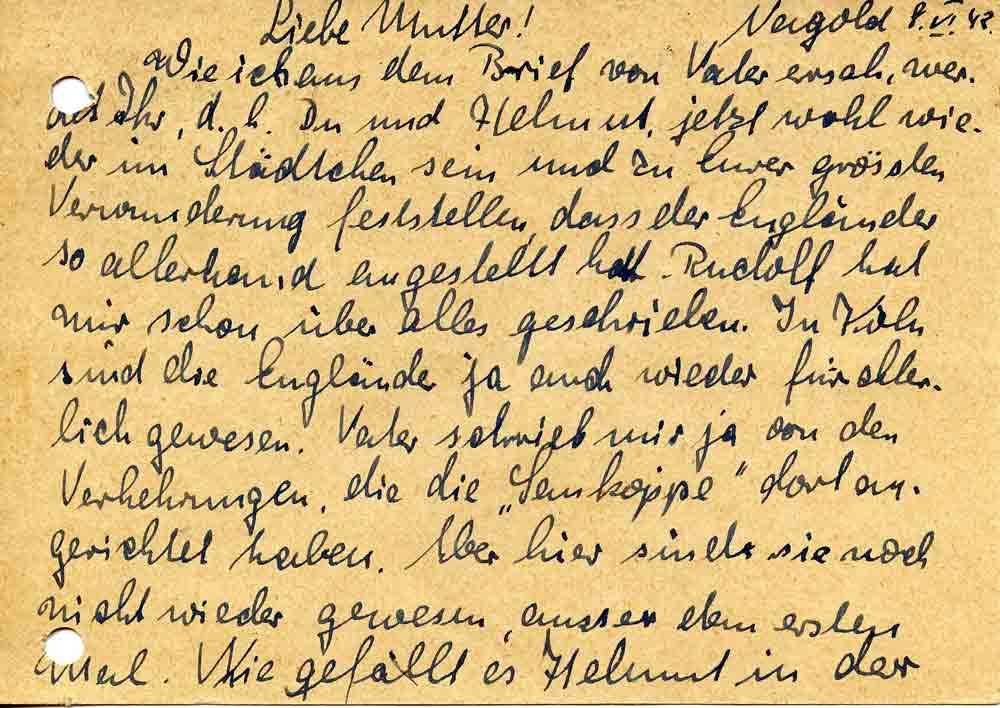 Liebe Mutter! Nagold 8.VI.42.
Wie ich aus dem Brief von Vater ersah, wer-
det Ihr, d. h. Du und Helmut, jetzt wohl wie-
der im Städtchen sein und zu Eurer grössten
Verwunderung feststellen, dass der Engländer
so allerhand angestellt hat. Rudolf hat
mir schon über alles geschrieben. In Köln
sind die Engländer ja auch wieder fürchter-
lich gewesen. Vater schrieb mir ja von den
Verhehrungen, die die „Sauköppe" dort an-
gerichtet haben. Aber hier sind sie noch
nicht wieder gewesen, ausser dem ersten
Mal. Wie gefällt es Helmut in der